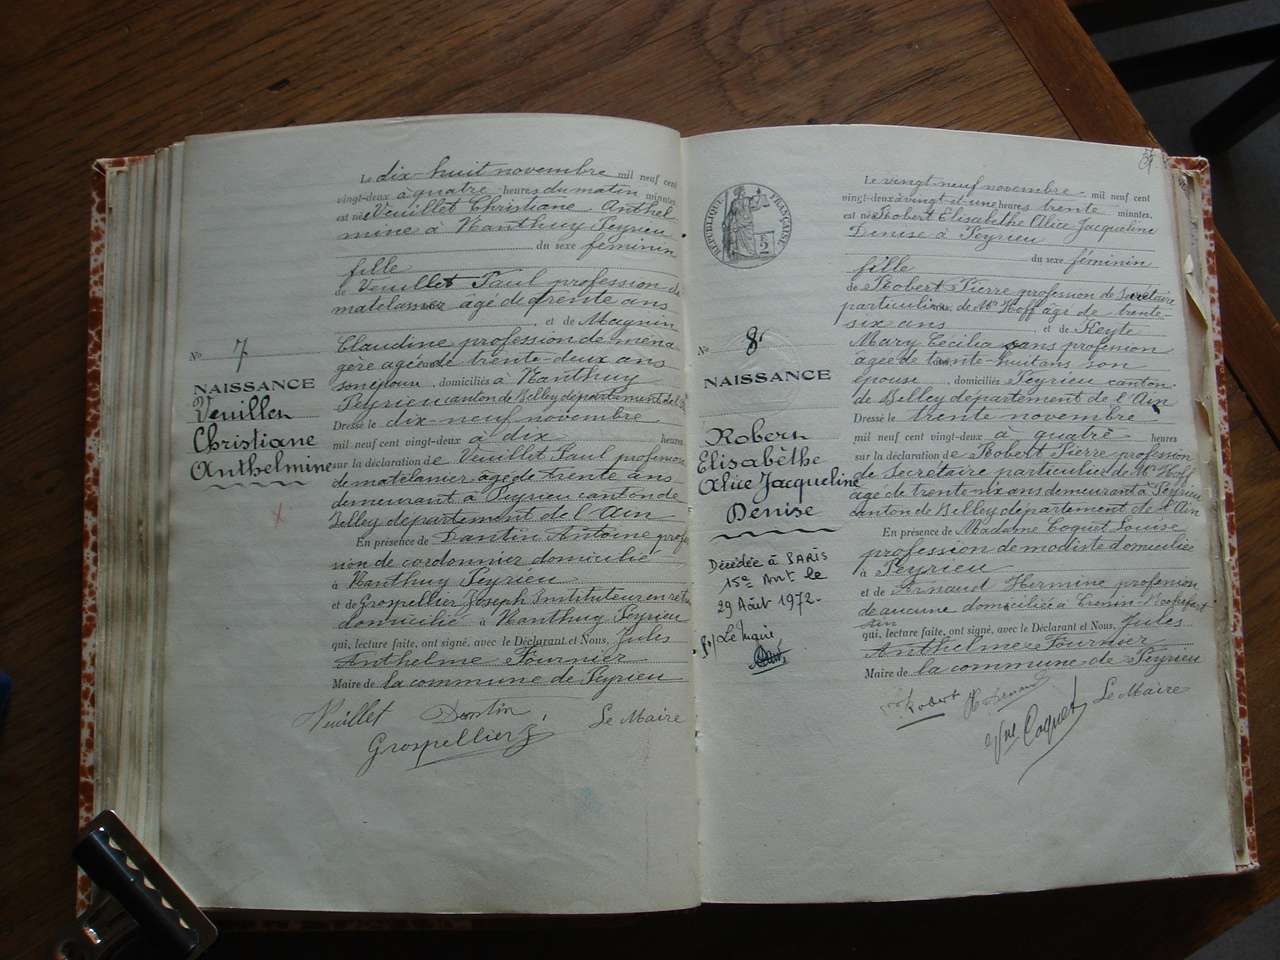 Le dix-huit novembre mil neuf cent
vingt-deux à quatre heures du matin minutes
est née Veuillet Christiane Anthel
mine à Nanthuy Peyrieu
du sexe féminin
fille
de Veuillet Paul profession de
matelassier âgé de trente ans
et de Magnin
Claudine profession de ména
gère agée de trente-deux ans
son épouse, domiciliés à Nanthuy
Peyrieu canton de Belley département de l'Ain
Dressé le dix-neuf novembre
mil neuf cent vingt-deux à dix heures
sur la déclaration de Veuillet Paul profession
de matelassier âgé de trente ans
demeurant à Peyrieu canton de
Belley département de l'Ain
En présence de Dantin Antoine profes
sion de cordonnier domicilié
à Nanthuy Peyrieu
et de Grospellier Joseph Instituteur en retraite
domicilié à Nanthuy Peyrieu
qui, lecture faite, ont signé, avec le Déclarant et Nous, Jules
Anthelme Fournier
Maire de la commune de Peyrieu
Veuillet Dantin Le Maire
Grospellier J
No 7
NAISSANCE
Veuillet
Christiane
Anthelmine
Le vingt-neuf novembre mil neuf cent
vingt-deux à vingt et une heures trente minutes
est née Robert Elisabèthe Alice Jacqueline
Denise à Peyrieu
du sexe féminin
fille
de Robert Pierre profession de Secrétaire
particulier de Mr Hoff âgé de trente-
six ans et de Keyte
Mary Cecilia sans profession
agée de trente-huit ans son
épouse, domiciliés Peyrieu canton
de Belley département de l'Ain
Dressé le trente novembre
mil neuf cent vingt-deux à quatre heures
sur la déclaration de Robert Pierre profession
de Secrétaire particulier de Mr Hoff
âgé de trente-six ans demeurant à Peyrieu
canton de Belley département de l'Ain
En présence de Madame Coquet Louise
profession de modiste domiciliée
à Peyrieu
et de Arnaud Hermine profession
de aucune domiciliée à
qui, lecture faite, ont signé, avec le Déclarant et Nous, Jules
Anthelme Fournier
Maire de la commune de Peyrieu
Robert H Arnaud Le Maire
Vve Coquet
RÉPUBLIQUE FRANÇAISE
No 8
NAISSANCE
Robert
Elisabèthe
Alice Jacqueline
Denise
Décédée à PARIS
15e Arrt le
29 Août 1972.
Le Maire